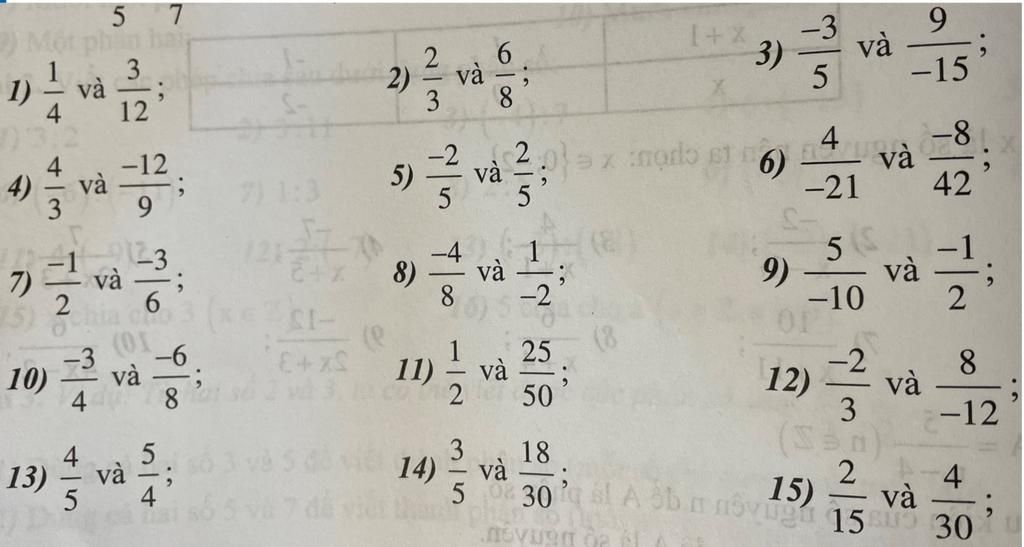 5 7
1) 1/4 và 3/12; 2) 2/3 và 6/8; 3) -3/5 và 9/-15;
4) 4/3 và -12/9; 5) -2/5 và 2/5; 6) 4/-21 và -8/42;
7) -1/2 và -3/6; 8) -4/8 và 1/-2; 9) 5/-10 và -1/2;
10) -3/4 và -6/8; 11) 1/2 và 25/50; 12) -2/3 và 8/-12;
13) 4/5 và 5/4; 14) 3/5 và 18/30; 15) 2/15 và 4/30;